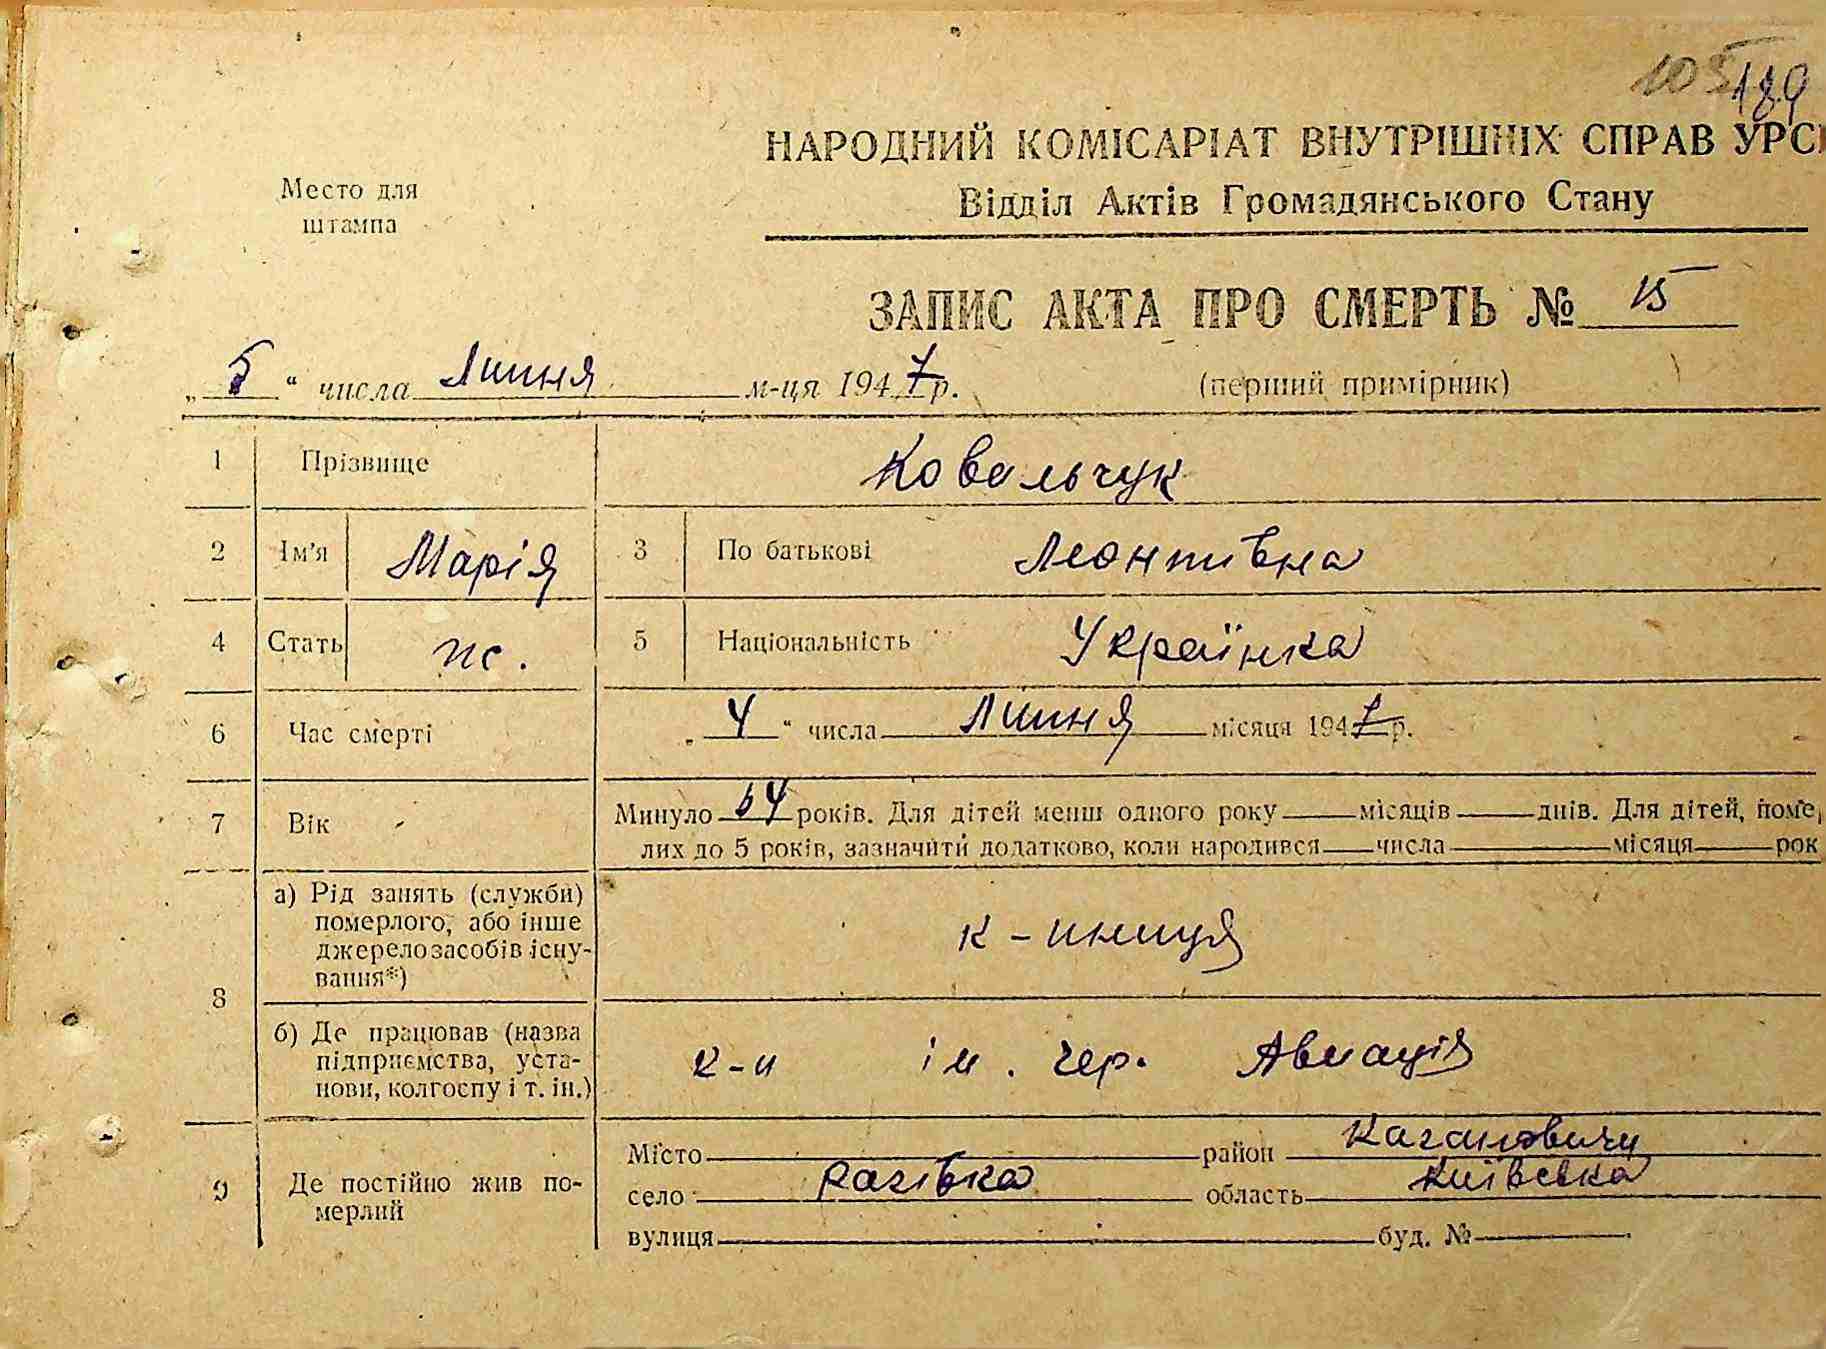 189
НАРОДНИЙ КОМІСАРІАТ ВНУТРІШНІХ СПРАВ УРС
Відділ Актів Громадянського Стану
Место для
штампа
ЗАПИС АКТА ПРО СМЕРТЬ № 15
„ 5 “ числа Липня м-ця 1947 р. (перший примірник)
1 Прізвище Ковальчук
2 Ім'я Марія 3 По батькові Леонтівна
4 Стать ж. 5 Національність Українка
6 Час смерті „ 4 “ числа Липня місяця 1947 р.
7 Вік Минуло 64 років. Для дітей менш одного року місяців днів. Для дітей, поме
лих до 5 років, зазначити додатково, коли народився числа місяця рок
8 а) Рід занять (служби)
померлого, або інше
джерело засобів існу-
вання*) к-ниця
б) Де працював (назва
підприємства, уста-
нови, колгоспу і т. ін.) к-п ім. Чер. Авиація
9 Де постійно жив по-
мерлий
Місто район Кагановичи
село Рагівка область Київська
вулиця буд. №